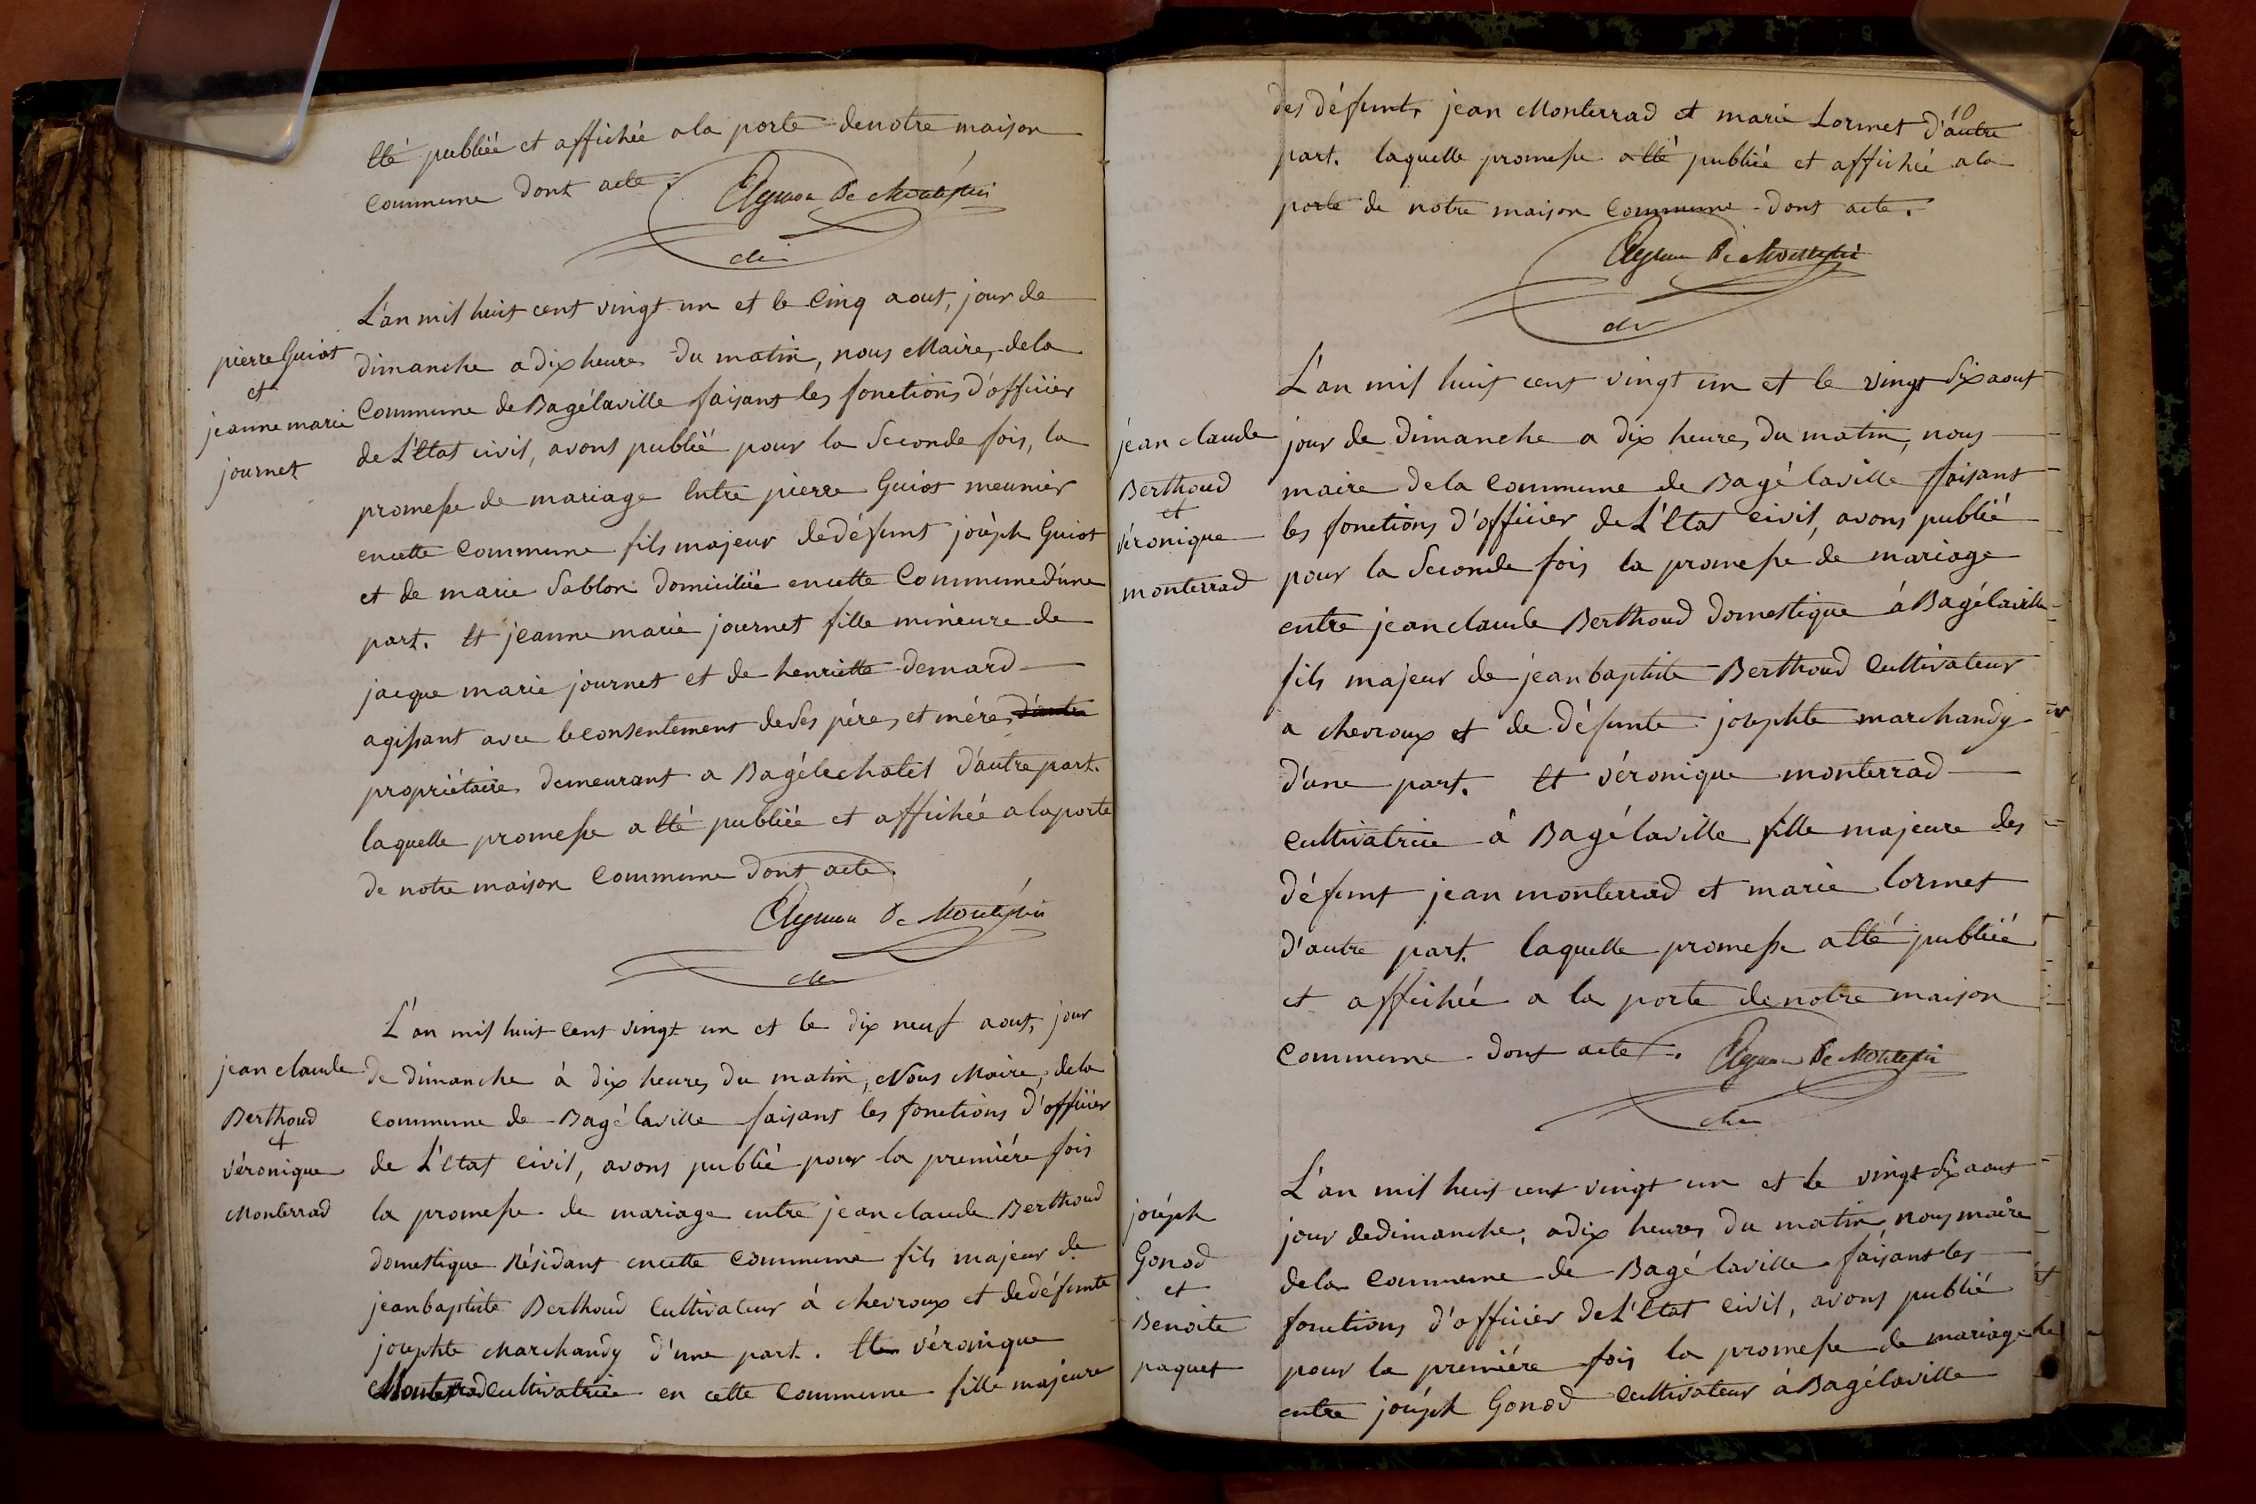 été publiée et affichée a la porte de notre maison
commune dont acte.
Aymon De Montépin
L'an mil huit cent vingt un et le cinq aout, jour de
pierre Guiot
et
jeanne marie
journet
dimanche a dix heures du matin, nous Maire, de la
Commune de Bagélaville faisant les fonctions d'officier
de L'Etat civil, avons publié pour la Seconde fois, la
promesse de mariage Entre pierre Guiot meunier
en cette Commune fils majeur de défunt joséph Guiot
et de marie Sablon domiciliée en cette Commune d'une
part. Et jeanne marie journet fille mineure de
jacque marie journet et de henriette demard
agissant avec le consentement de Ses pére, et mére, d'autre
propriétaires demeurant a Bagélechatel d'autre part.
laquelle promesse a été publiée et affichée a la porte
de notre maison Commune dont acte.
Aymon De Montépin
L'an mil huit cent vingt un et le dix neuf aout, jour
jean claude
Berthoud
+
véronique
Monterrad
de dimanche à dix heures du matin, Nous Maire, de la
commune de Bagélaville faisant les fonctions d'officier
de L'etat civil, avons publié pour la premiére fois
la promesse de mariage entre jean claude Berthoud
domestique Résidant en cette commune fils majeur de
jean baptiste Berthoud Cultivateur à chevroux et de défunte
josephte Marchandy d'une part. Et véronique
Monterrad cultivatrice en cette Commune fille majeure
10
des défunts jean Monterrad et marie Lormet d'autre
part. laquelle promesse a été publiée et affichée a la
porte de notre maison Commune dont acte.
Aymon De Montépin
L'an mil huit cent vingt un et le vingt Six aout
jean claude
Berthoud
et
véronique
monterrad
jour de dimanche a dix heures du matin, nous
maire de la commune de Bagélaville faisant
les fonctions d'officier de L'Etat civil, avons publié
pour la Seconde fois la promesse de mariage
entre jean claude Berthoud domestique à Bagélaville
fils majeur de jean baptiste Berthoud Cultivateur
a chevroux et de défunte josephte marchandy
d'une part. Et véronique monterrad
cultivatrice à Bagélaville fille majeure des
défunt jean monterrad et marie lormet
d'autre part. laquelle promesse a été publiée
et affichée a la porte de notre maison
commune dont acte.
Aymon De Montépin
L'an mil huit cent vingt un et le vingt Six aout
joséph
Gonod
et
Benoite
paquet
jour de dimanche, a dix heures du matin, nous maire
de la commune de Bagélaville faisant les
fonctions d'officier de L'Etat civil, avons publié
pour la premiére fois la promesse de mariage
entre joséph Gonod cultivateur à Bagélaville